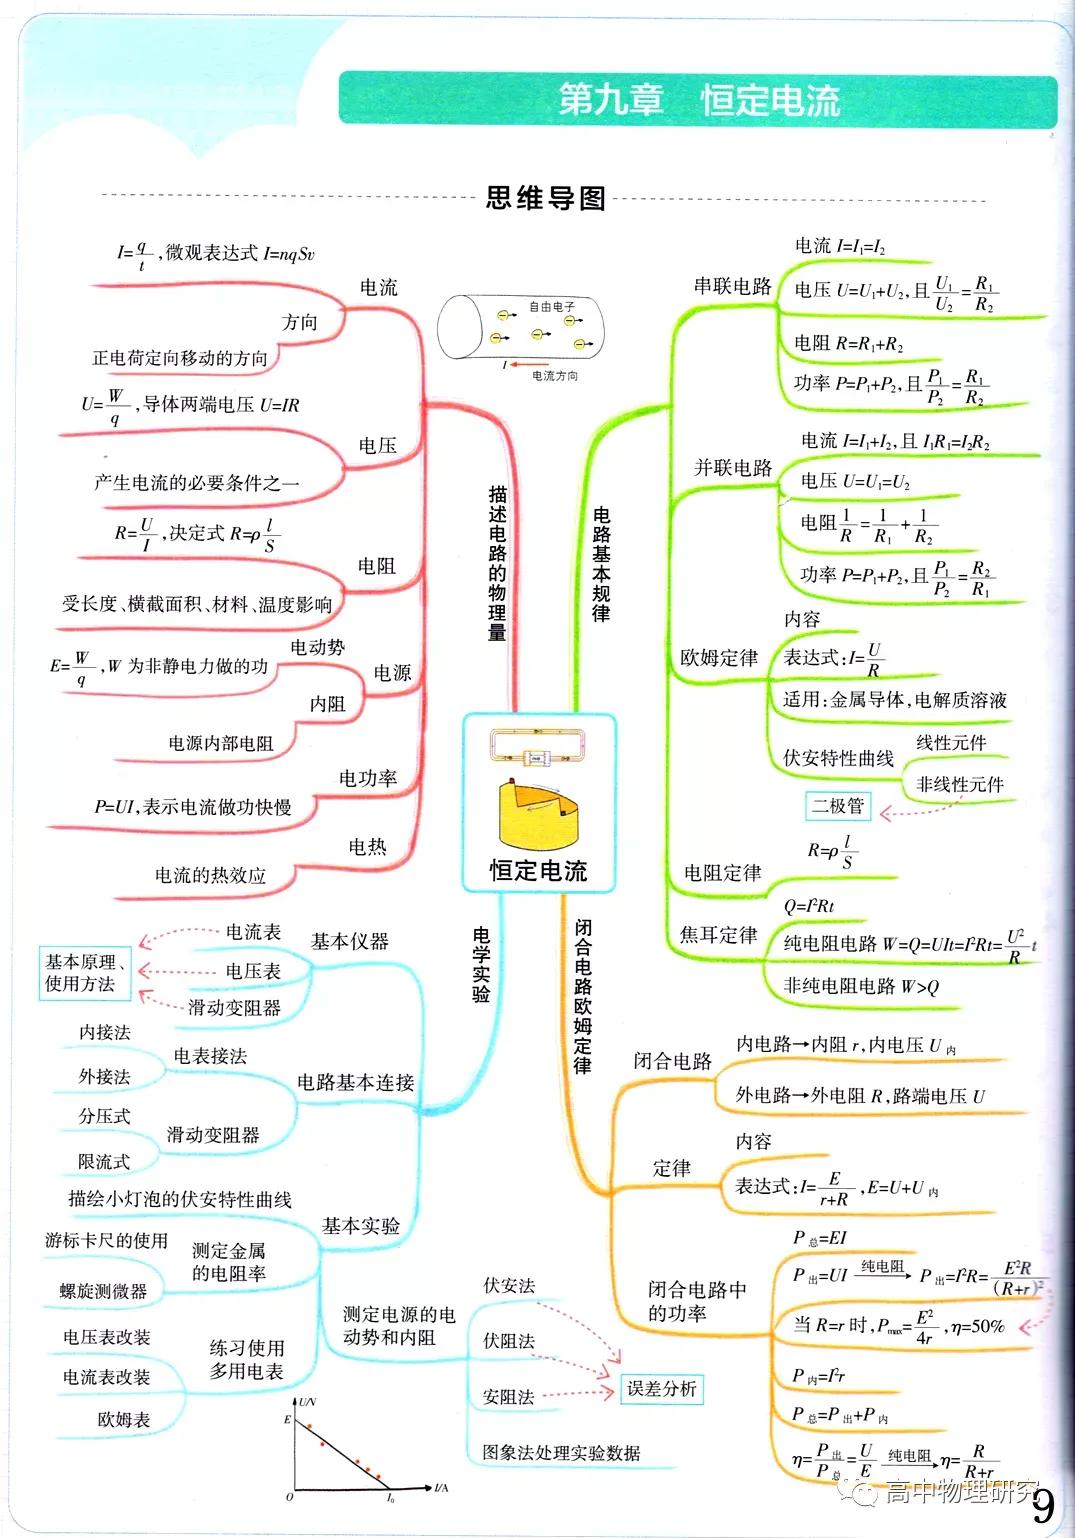 第九章 恒定电流
思维导图
I=q/t,微观表达式 I=nqSv
电流
方向
正电荷定向移动的方向
U=W/q,导体两端电压 U=IR
电压
产生电流的必要条件之一
R=U/I,决定式 R=ρl/S
电阻
受长度、横截面积、材料、温度影响
电动势
E=W/q,W 为非静电力做的功
电源
内阻
电源内部电阻
电功率
P=UI,表示电流做功快慢
电热
电流的热效应
描述电路的物理量
自由电子
I
电流方向
电路基本规律
串联电路
电流 I=I₁=I₂
电压 U=U₁+U₂,且U₁/U₂=R₁/R₂
电阻 R=R₁+R₂
功率 P=P₁+P₂,且P₁/P₂=R₁/R₂
并联电路
电流 I=I₁+I₂,且 I₁R₁=I₂R₂
电压 U=U₁=U₂
电阻1/R=1/R₁+1/R₂
功率 P=P₁+P₂,且P₁/P₂=R₂/R₁
欧姆定律
内容
表达式:I=U/R
适用:金属导体,电解质溶液
伏安特性曲线
线性元件
非线性元件
二极管
电阻定律
R=ρl/S
焦耳定律
Q=I²Rt
纯电阻电路 W=Q=UIt=I²Rt=U²/R t
非纯电阻电路 W>Q
恒定电流
电学实验
基本仪器
电流表
电压表
滑动变阻器
基本原理、
使用方法
电路基本连接
电表接法
内接法
外接法
滑动变阻器
分压式
限流式
基本实验
描绘小灯泡的伏安特性曲线
测定金属
的电阻率
游标卡尺的使用
螺旋测微器
练习使用
多用电表
电压表改装
电流表改装
欧姆表
测定电源的电
动势和内阻
伏安法
伏阻法
安阻法
误差分析
图象法处理实验数据
U/V
E
O
I₀
I/A
闭合电路欧姆定律
闭合电路
内电路→内阻 r,内电压 U内
外电路→外电阻 R,路端电压 U
定律
内容
表达式:I=E/(r+R),E=U+U内
闭合电路中
的功率
P总=EI
P出=UI 纯电阻→ P出=I²R=E²R/(R+r)²
当 R=r 时,Pmax=E²/4r,η=50%
P内=I²r
P总=P出+P内
η=P出/P总=U/E 纯电阻→ η=R/(R+r)
高中物理研究
9